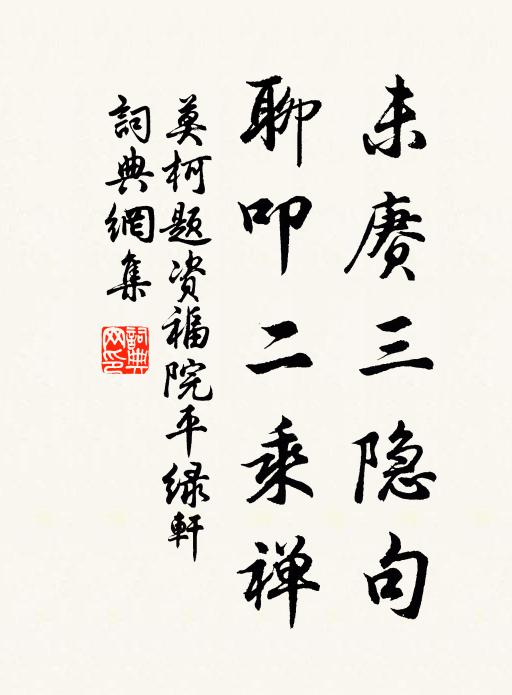 未赓三隐句
聊叩二乘禅
莫柯题资福院平绿軒
詞典網集
詞典
网印